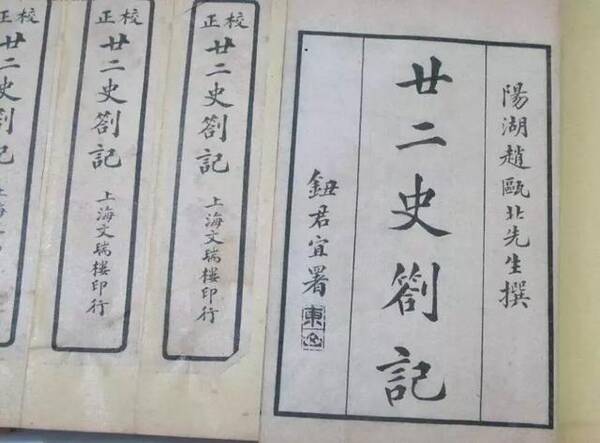 陽湖趙甌北先生撰
廿二史劄記
鈕君宜署
校正
廿二史劄記
上海文瑞樓印行
校正
廿二史劄記
上海文瑞樓印行
校正
廿二史劄記